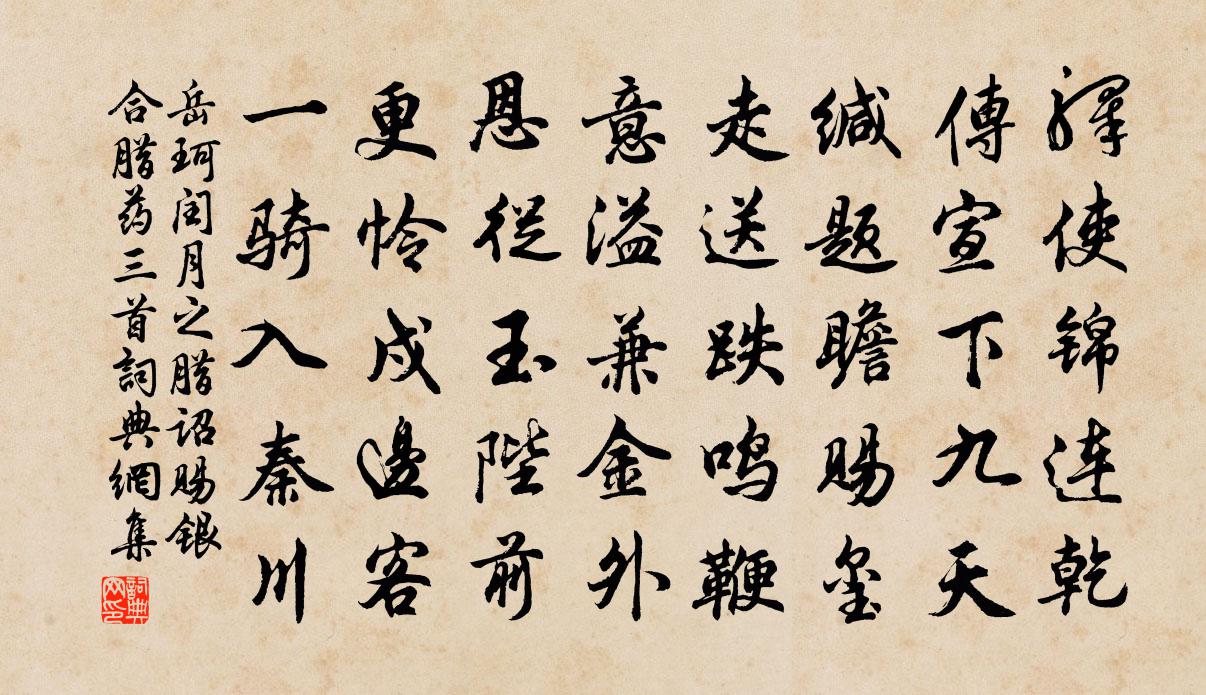 驛使锦連乾
傳宣下九天
缄题瞻赐玺
走送跌鸣鞭
意溢兼金外
恩從玉陛前
更怜戍邊客
一骑入秦川
岳珂闰月之腊诏赐银
合腊药三首詞典網集
詞典
网印